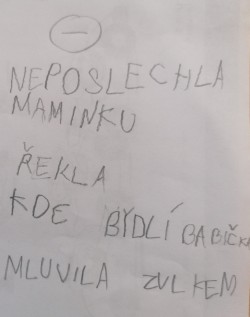 NEPOSLECHLA
MAMINKU
ŘEKLA
KDE BYDLÍ BABIČKA
MLUVILA ZVLKEM